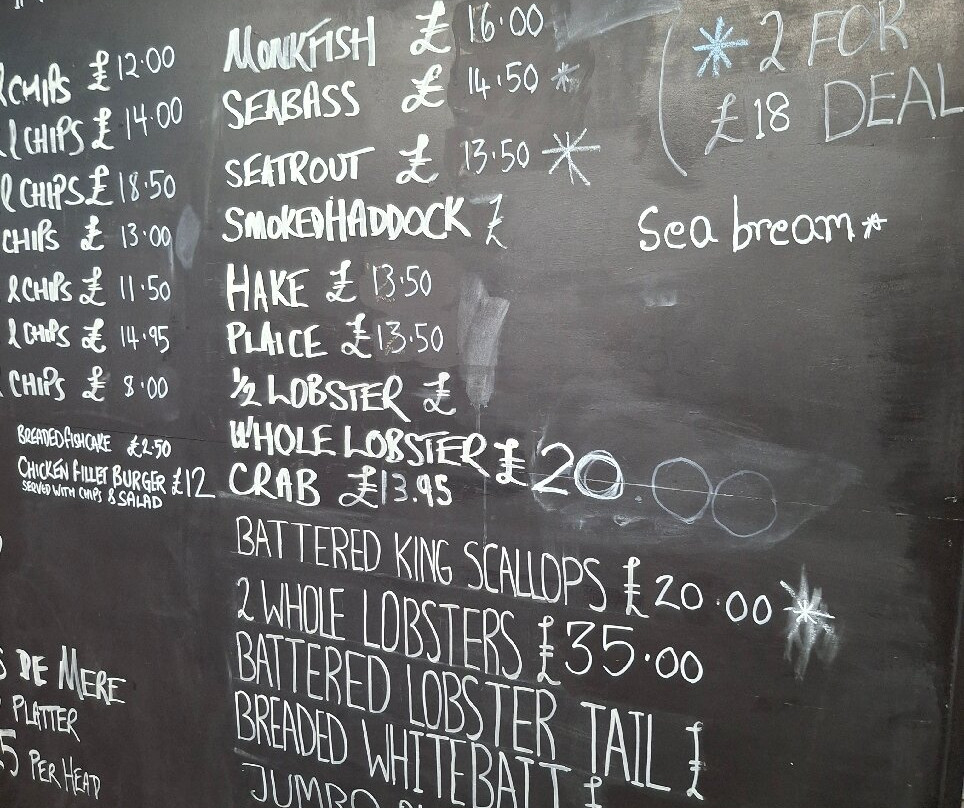 CHIPS £ 12.00
CHIPS £ 14.00
CHIPS £ 18.50
CHIPS £ 13.00
& CHIPS £ 11.50
& CHIPS £ 14.95
CHIPS £ 8.00
BREADED FISHCAKE £2.50
CHICKEN FILLET BURGER £12
SERVED WITH CHIPS & SALAD
DE MERE
PLATTER
5 PER HEAD
MONKFISH £ 16.00
SEABASS £ 14.50 *
SEATROUT £ 13.50 *
SMOKED HADDOCK £
HAKE £ 13.50
PLAICE £ 13.50
½ LOBSTER £
WHOLE LOBSTER £ 20.00
CRAB £13.95
BATTERED KING SCALLOPS £20.00 *
2 WHOLE LOBSTERS £35.00
BATTERED LOBSTER TAIL £
BREADED WHITEBATT £
JUMBO
* 2 FOR
£18 DEAL
Sea bream *